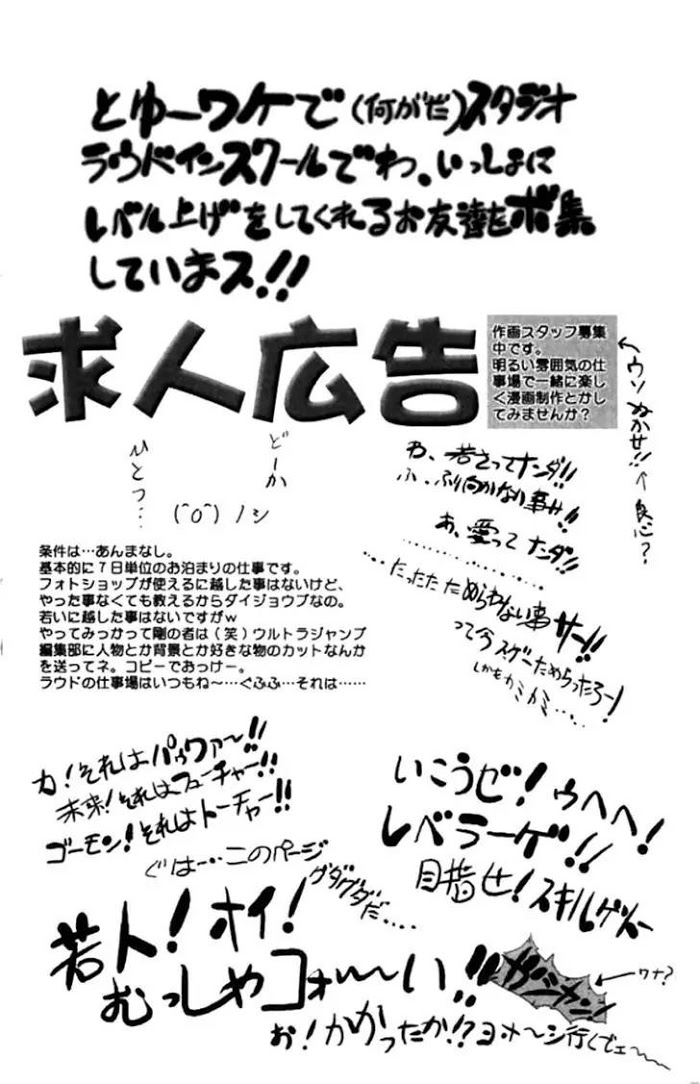 とゆーワケで(何がだ)スタジオ
ラウドインスクールでわ、いっしょに
レベル上げをしてくれるお友達をボ集
していまス!!
求人広告
作画スタッフ募集
中です。
明るい雰囲気の仕
事場で一緒に楽し
く漫画制作とかし
てみませんか?
←ウソぬかせ!!
←良心?
どーか
ひとつ…
(^o^)ノシ
わ、若さってナンダ!!
ふ、ふり向かない事サ!!
あ、愛ってナンダ!!
…だったためらわない事サー!!
って今スゲーためらったろー!
しかもカミカミ……
条件は…あんまなし。
基本的に7日単位のお泊まりの仕事です。
フォトショップが使えるに越した事はないけど、
やった事なくても教えるからダイジョウブなの。
若いに越した事はないですがw
やってみっかって剛の者は(笑)ウルトラジャンプ
編集部に人物とか背景とか好きな物のカットなんか
を送ってネ。コピーでおっけー。
ラウドの仕事場はいつもね〜…ぐふふ…それは……
力!それはパゥワァ〜!!
未来!それはフューチャー!!
ゴーモン!それはトーチャー!!
ぐは…このページ
グダグダだ……
いこうゼ!ゥヘヘ!
レベラーゲ!!
目指せ!スキルゲッター
若人!オイ!
むっしゃコォ〜〜い!!
ガシャン!
←ワナ?
お!かかったか!?ヨォ〜シ行くぜェ〜〜